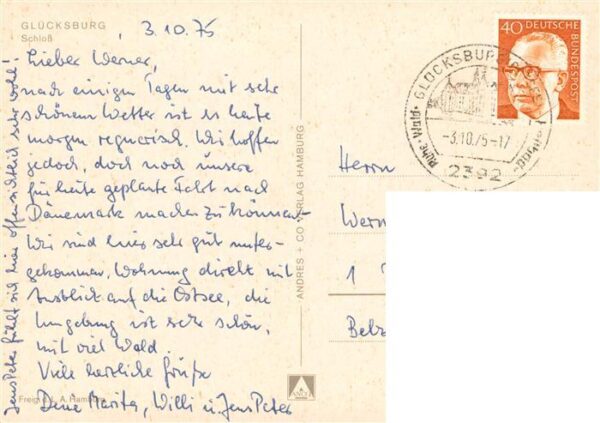 GLÜCKSBURG
Schloß
3.10.75
Lieber Werner,
nach einigen Tagen mit sehr
schönem Wetter ist es heute
morgen regnerisch. Wir hoffen
jedoch, doch noch unsere
für heute geplante Fahrt nach
Dänemark machen zu können.
Wir sind hier sehr gut unter-
gekommen, Wohnung direkt mit
Ausblick auf die Ostsee, die
Umgebung ist sehr schön,
mit viel Wald.
Viele herzliche Grüße
Deine Marita, Willi u. Jens Peter
Jens Peter fühlt sich hier offensichtlich sehr wohl!
Freig. d. L. A. Hamburg
ANDRES + CO VERLAG HAMBURG
40 DEUTSCHE BUNDESPOST
GLÜCKSBURG
-3.10.75-17
2392
Ruhe · Wald ·
Herrn
Wern
1